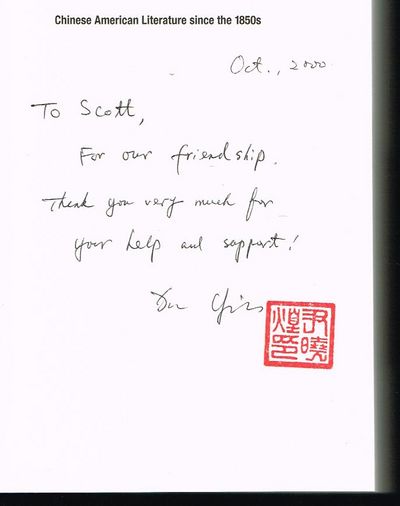 Chinese American Literature since the 1850s
Oct., 2000
To Scott,
For our friendship.
Thank you very much for
your help and support!
Xiao-huang Yin
尹曉
煌印